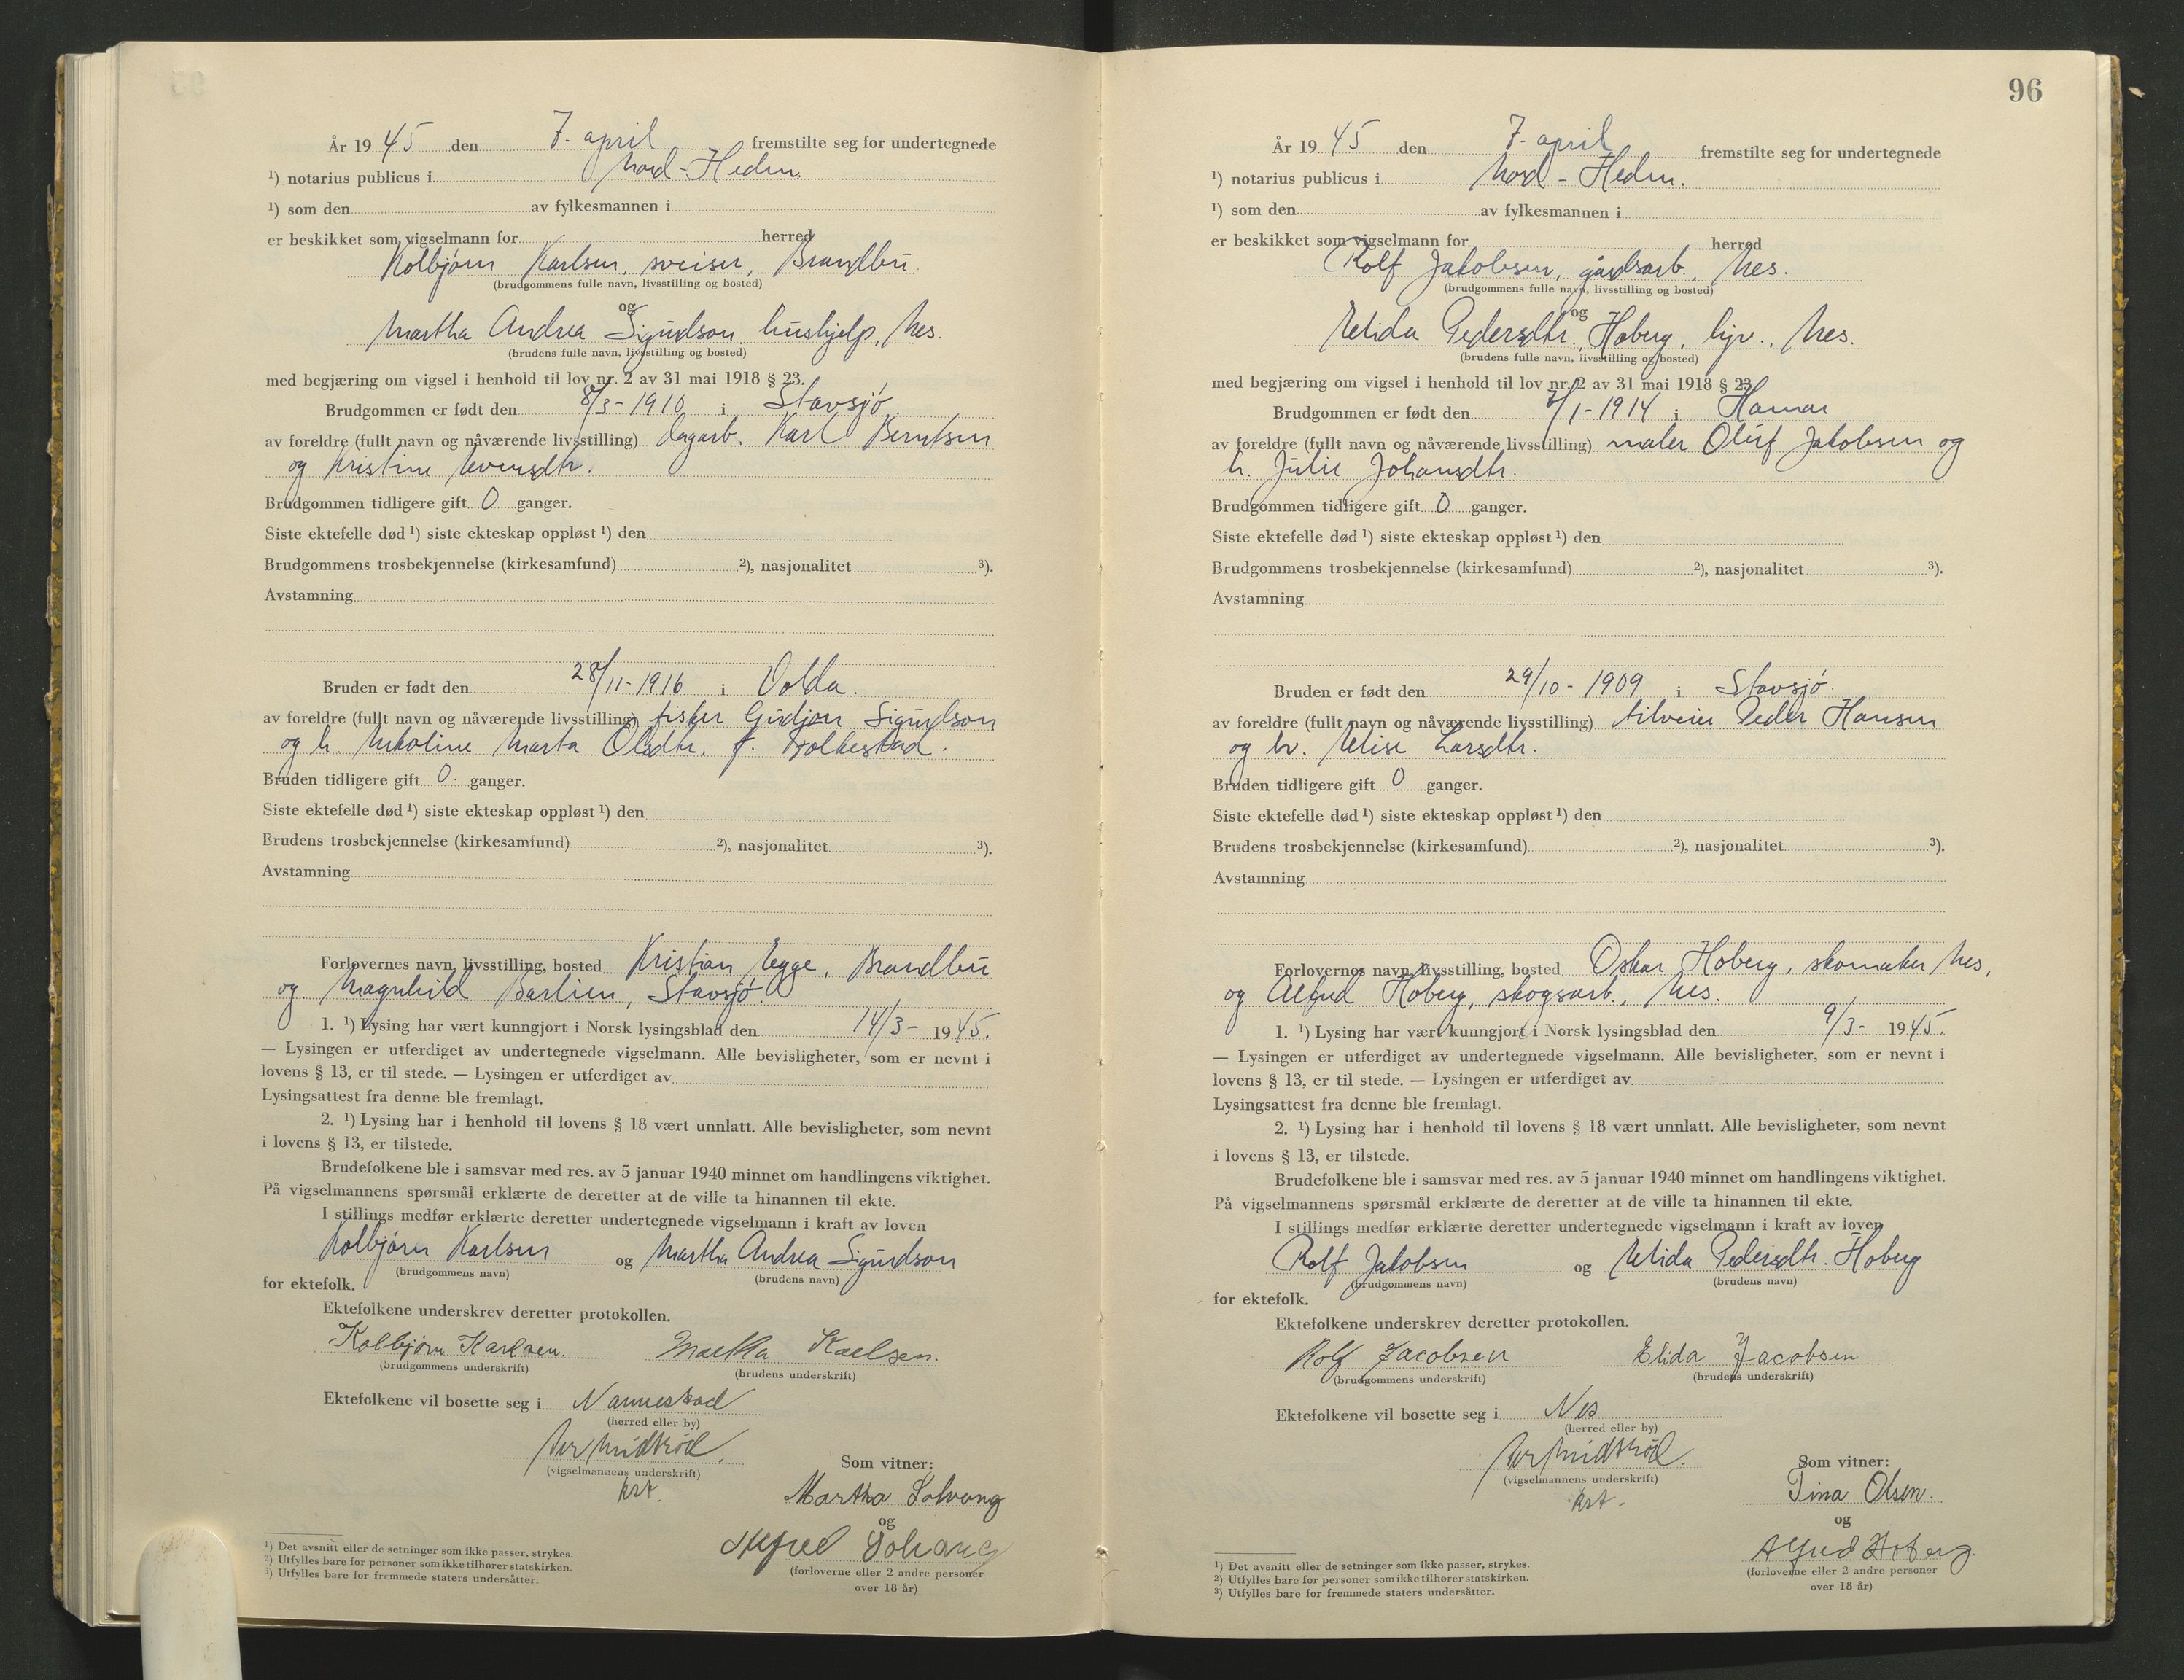 År 19 45 den 7. april fremstilte seg for undertegnede
¹) notarius publicus i Nord-Hedm.
¹) som den av fylkesmannen i
er beskikket som vigselmann for herred
Kolbjørn Karlsen, sveiser, Brandbu
(brudgommens fulle navn, livsstilling og bosted)
og
Martha Andrea Sigurdson, hushjelp, Nes.
(brudens fulle navn, livsstilling og bosted)
med begjæring om vigsel i henhold til lov nr. 2 av 31 mai 1918 § 23.
Brudgommen er født den 8/3-1910 i Stavsjø
av foreldre (fullt navn og nåværende livsstilling) dagarb. Karl Berntsen
og Kristine Evensdtr.
Brudgommen tidligere gift 0 ganger.
Siste ektefelle død ¹) siste ekteskap oppløst ¹) den
Brudgommens trosbekjennelse (kirkesamfund) ²), nasjonalitet ³).
Avstamning
Bruden er født den 28/11-1916 i Volda.
av foreldre (fullt navn og nåværende livsstilling) fisker Gudjon Sigurdson
og h. Nikoline Marta Olsdtr. f. Folkestad.
Bruden tidligere gift 0. ganger.
Siste ektefelle død ¹) siste ekteskap oppløst ¹) den
Brudens trosbekjennelse (kirkesamfund) ²), nasjonalitet ³).
Avstamning
Forlovernes navn, livsstilling, bosted Kristian Egge, Brandbu
og Magnhild Barlien, Stavsjø.
1. ¹) Lysing har vært kunngjort i Norsk lysingsblad den 14/3- 1945.
— Lysingen er utferdiget av undertegnede vigselmann. Alle bevisligheter, som er nevnt i
lovens § 13, er til stede. — Lysingen er utferdiget av
Lysingsattest fra denne ble fremlagt.
2. ¹) Lysing har i henhold til lovens § 18 vært unnlatt. Alle bevisligheter, som nevnt
i lovens § 13, er tilstede.
Brudefolkene ble i samsvar med res. av 5 januar 1940 minnet om handlingens viktighet.
På vigselmannens spørsmål erklærte de deretter at de ville ta hinannen til ekte.
I stillings medfør erklærte deretter undertegnede vigselmann i kraft av loven
Kolbjørn Karlsen og Martha Andrea Sigurdson
(brudgommens navn) (brudens navn)
for ektefolk.
Ektefolkene underskrev deretter protokollen.
Kolbjørn Karlsen. Martha Karlsen.
(brudgommens underskrift) (brudens underskrift)
Ektefolkene vil bosette seg i Nannestad
(herred eller by)
Per Midtrød.
(vigselmannens underskrift)
kst.
Som vitner:
Martha Solvang
og
Alfred Solvang
(forloverne eller 2 andre personer
over 18 år)
¹) Det avsnitt eller de setninger som ikke passer, strykes.
²) Utfylles bare for personer som ikke tilhører statskirken.
³) Utfylles bare for fremmede staters undersåtter.
96
År 19 45 den 7. april fremstilte seg for undertegnede
¹) notarius publicus i Nord-Hedm.
¹) som den av fylkesmannen i
er beskikket som vigselmann for herred
Rolf Jakobsen, gårdsarb., Nes.
(brudgommens fulle navn, livsstilling og bosted)
og
Elida Pedersdtr. Hoberg, hjv., Nes.
(brudens fulle navn, livsstilling og bosted)
med begjæring om vigsel i henhold til lov nr. 2 av 31 mai 1918 § 23
Brudgommen er født den /1-1914 i Hamar
av foreldre (fullt navn og nåværende livsstilling) maler Oluf Jakobsen og
h. Julie Johansdtr.
Brudgommen tidligere gift 0 ganger.
Siste ektefelle død ¹) siste ekteskap oppløst ¹) den
Brudgommens trosbekjennelse (kirkesamfund) ²), nasjonalitet ³).
Avstamning
Bruden er født den 29/10-1909 i Stavsjø.
av foreldre (fullt navn og nåværende livsstilling) Peder Hansen
og h. Elise Larsdtr.
Bruden tidligere gift 0 ganger.
Siste ektefelle død ¹) siste ekteskap oppløst ¹) den
Brudens trosbekjennelse (kirkesamfund) ²), nasjonalitet ³).
Avstamning
Forlovernes navn, livsstilling, bosted Oskar Hoberg, skomaker, Nes,
og Alfred Hoberg, skogsarb., Nes.
1. ¹) Lysing har vært kunngjort i Norsk lysingsblad den 9/3- 1945.
— Lysingen er utferdiget av undertegnede vigselmann. Alle bevisligheter, som er nevnt i
lovens § 13, er til stede. — Lysingen er utferdiget av
Lysingsattest fra denne ble fremlagt.
2. ¹) Lysing har i henhold til lovens § 18 vært unnlatt. Alle bevisligheter, som nevnt
i lovens § 13, er tilstede.
Brudefolkene ble i samsvar med res. av 5 januar 1940 minnet om handlingens viktighet.
På vigselmannens spørsmål erklærte de deretter at de ville ta hinannen til ekte.
I stillings medfør erklærte deretter undertegnede vigselmann i kraft av loven
Rolf Jakobsen og Elida Pedersdtr. Hoberg
(brudgommens navn) (brudens navn)
for ektefolk.
Ektefolkene underskrev deretter protokollen.
Rolf Jacobsen Elida Jacobsen
(brudgommens underskrift) (brudens underskrift)
Ektefolkene vil bosette seg i Nes
(herred eller by)
Per Midtrød.
(vigselmannens underskrift)
kst.
Som vitner:
Tina Olsen.
og
Alfred Hoberg.
(forloverne eller 2 andre personer
over 18 år)
¹) Det avsnitt eller de setninger som ikke passer, strykes.
²) Utfylles bare for personer som ikke tilhører statskirken.
³) Utfylles bare for fremmede staters undersåtter.